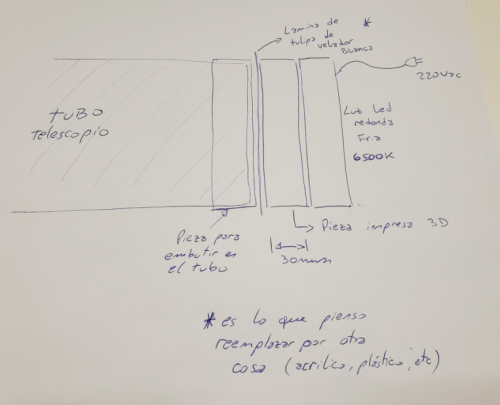 Lamina de *
tulipa de
velador
Blanca
220Vac
tUBO
Telescopio
Luz Led
redonda
Fria
6500K
Pieza para
embutir en
el tubo
Pieza impresa 3D
30mm
* es lo que pienso
reemplazar por otra
cosa (acrilico, plástico, etc)